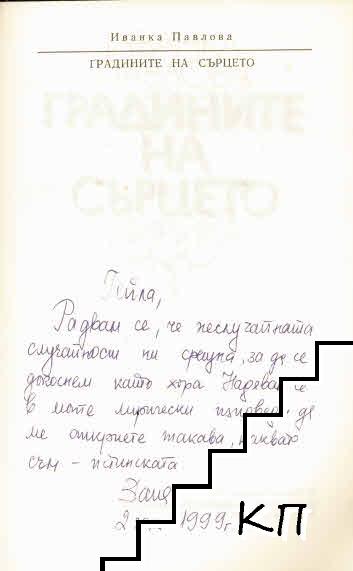 Иванка Павлова
ГРАДИНИТЕ НА СЪРЦЕТО
ГРАДИНИТЕ
НА
СЪРЦЕТО
Радвам се, че неслучайната
случайност ни срещна, за да се
докоснем като хора. Надявам че
в моите лирически изповеди да
ме откриете такава, каквато
съм - истинската
2 1999г.
КП